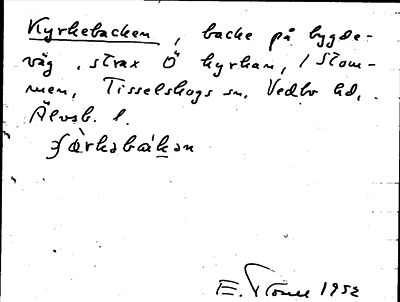 Kyrkebacken, backe på bygde-
väg, strax Ö kyrkan, i Stom-
men, Tisselskogs sn, Vedbo hd,
Älvsb. l.
1952